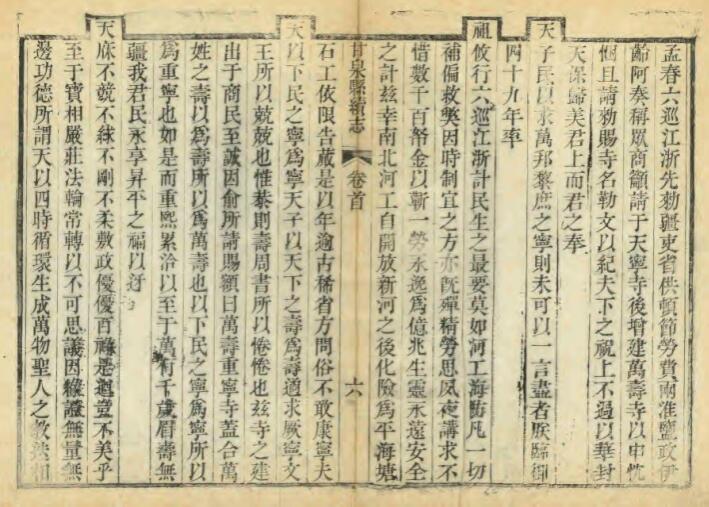 孟春六巡江浙先勑疆吏省供頓節勞費兩淮鹽政伊
齡阿奏稱眾商籲請于天寧寺後增建萬壽寺以申忱
悃且請勑賜寺名勒文以紀夫下之祝上不過以華封
天保歸美君上而君之奉
天子民以求萬邦黎庶之寧則未可以一言盡者朕臨御
四十九年率
祖攸行六巡江浙計民生之最要莫如河工海防凡一切
補偏救獘因時制宜之方亦既殫精勞思夙夜講求不
惜數千百帑金以蘄一勞永逸為億兆生靈永遠安全
之計茲幸南北河工自開放新河之後化險為平海塘
甘泉縣續志 卷首 六
石工依限告蕆是以年逾古稀省方問俗不敢康寧夫
天以下民之寧為寧天子以天下之壽為壽遹求厥寧文
王所以兢兢也惟㳟則壽周書所以惓惓也茲寺之建
出于商民至誠因俞所請賜額曰萬壽重寧寺蓋合萬
姓之壽以為壽所以為萬壽也以下民之寧為寧所以
為重寧也如是而重熙累洽以至于萬有千歲眉壽無
疆我君民永享昇平之福以迓
天庥不競不絿不剛不柔敷政優優百祿是遒豈不美乎
至于寶相嚴莊法輪常轉以不可思議因緣證無量無
邊功德所謂天以四時循環生成萬物聖人之教迭相